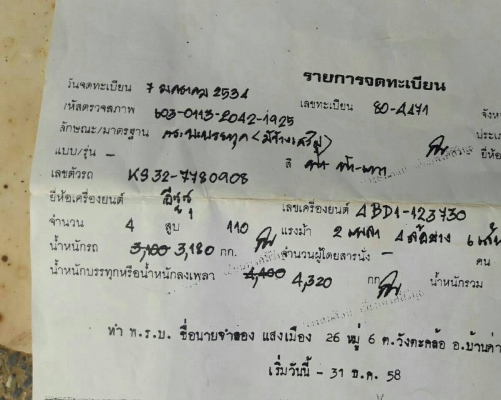 รายการจดทะเบียน
วันจดทะเบียน 7 มกราคม 2534 เลขทะเบียน 80-4471 จังห
รหัสตรวจสภาพ 603-0113-2042-1925 ประเภ
ลักษณะ/มาตรฐาน กระบะบรรทุก ยี่ห้อ
แบบ/รุ่น - สี
เลขตัวรถ KS32-7780908
ยี่ห้อเครื่องยนต์ อีซูซุ เลขเครื่องยนต์ 4BD1-123730
จำนวน 4 สูบ 110 แรงม้า 2 เพลา 4 ล้อ ยาง 6 เส้น
น้ำหนักรถ 3,100 3,180 กก. จำนวนผู้โดยสารนั่ง - คน
น้ำหนักบรรทุกหรือน้ำหนักลงเพลา 4,400 4,320 กก น้ำหนักรวม
ทำ พ.ร.บ. ชื่อนายจำลอง แสงเมือง 26 หมู่ 6 ต.วังตะคล้อ อ.บ้านด่า
เริ่มวันนี้ - 31 ธ.ค. 58